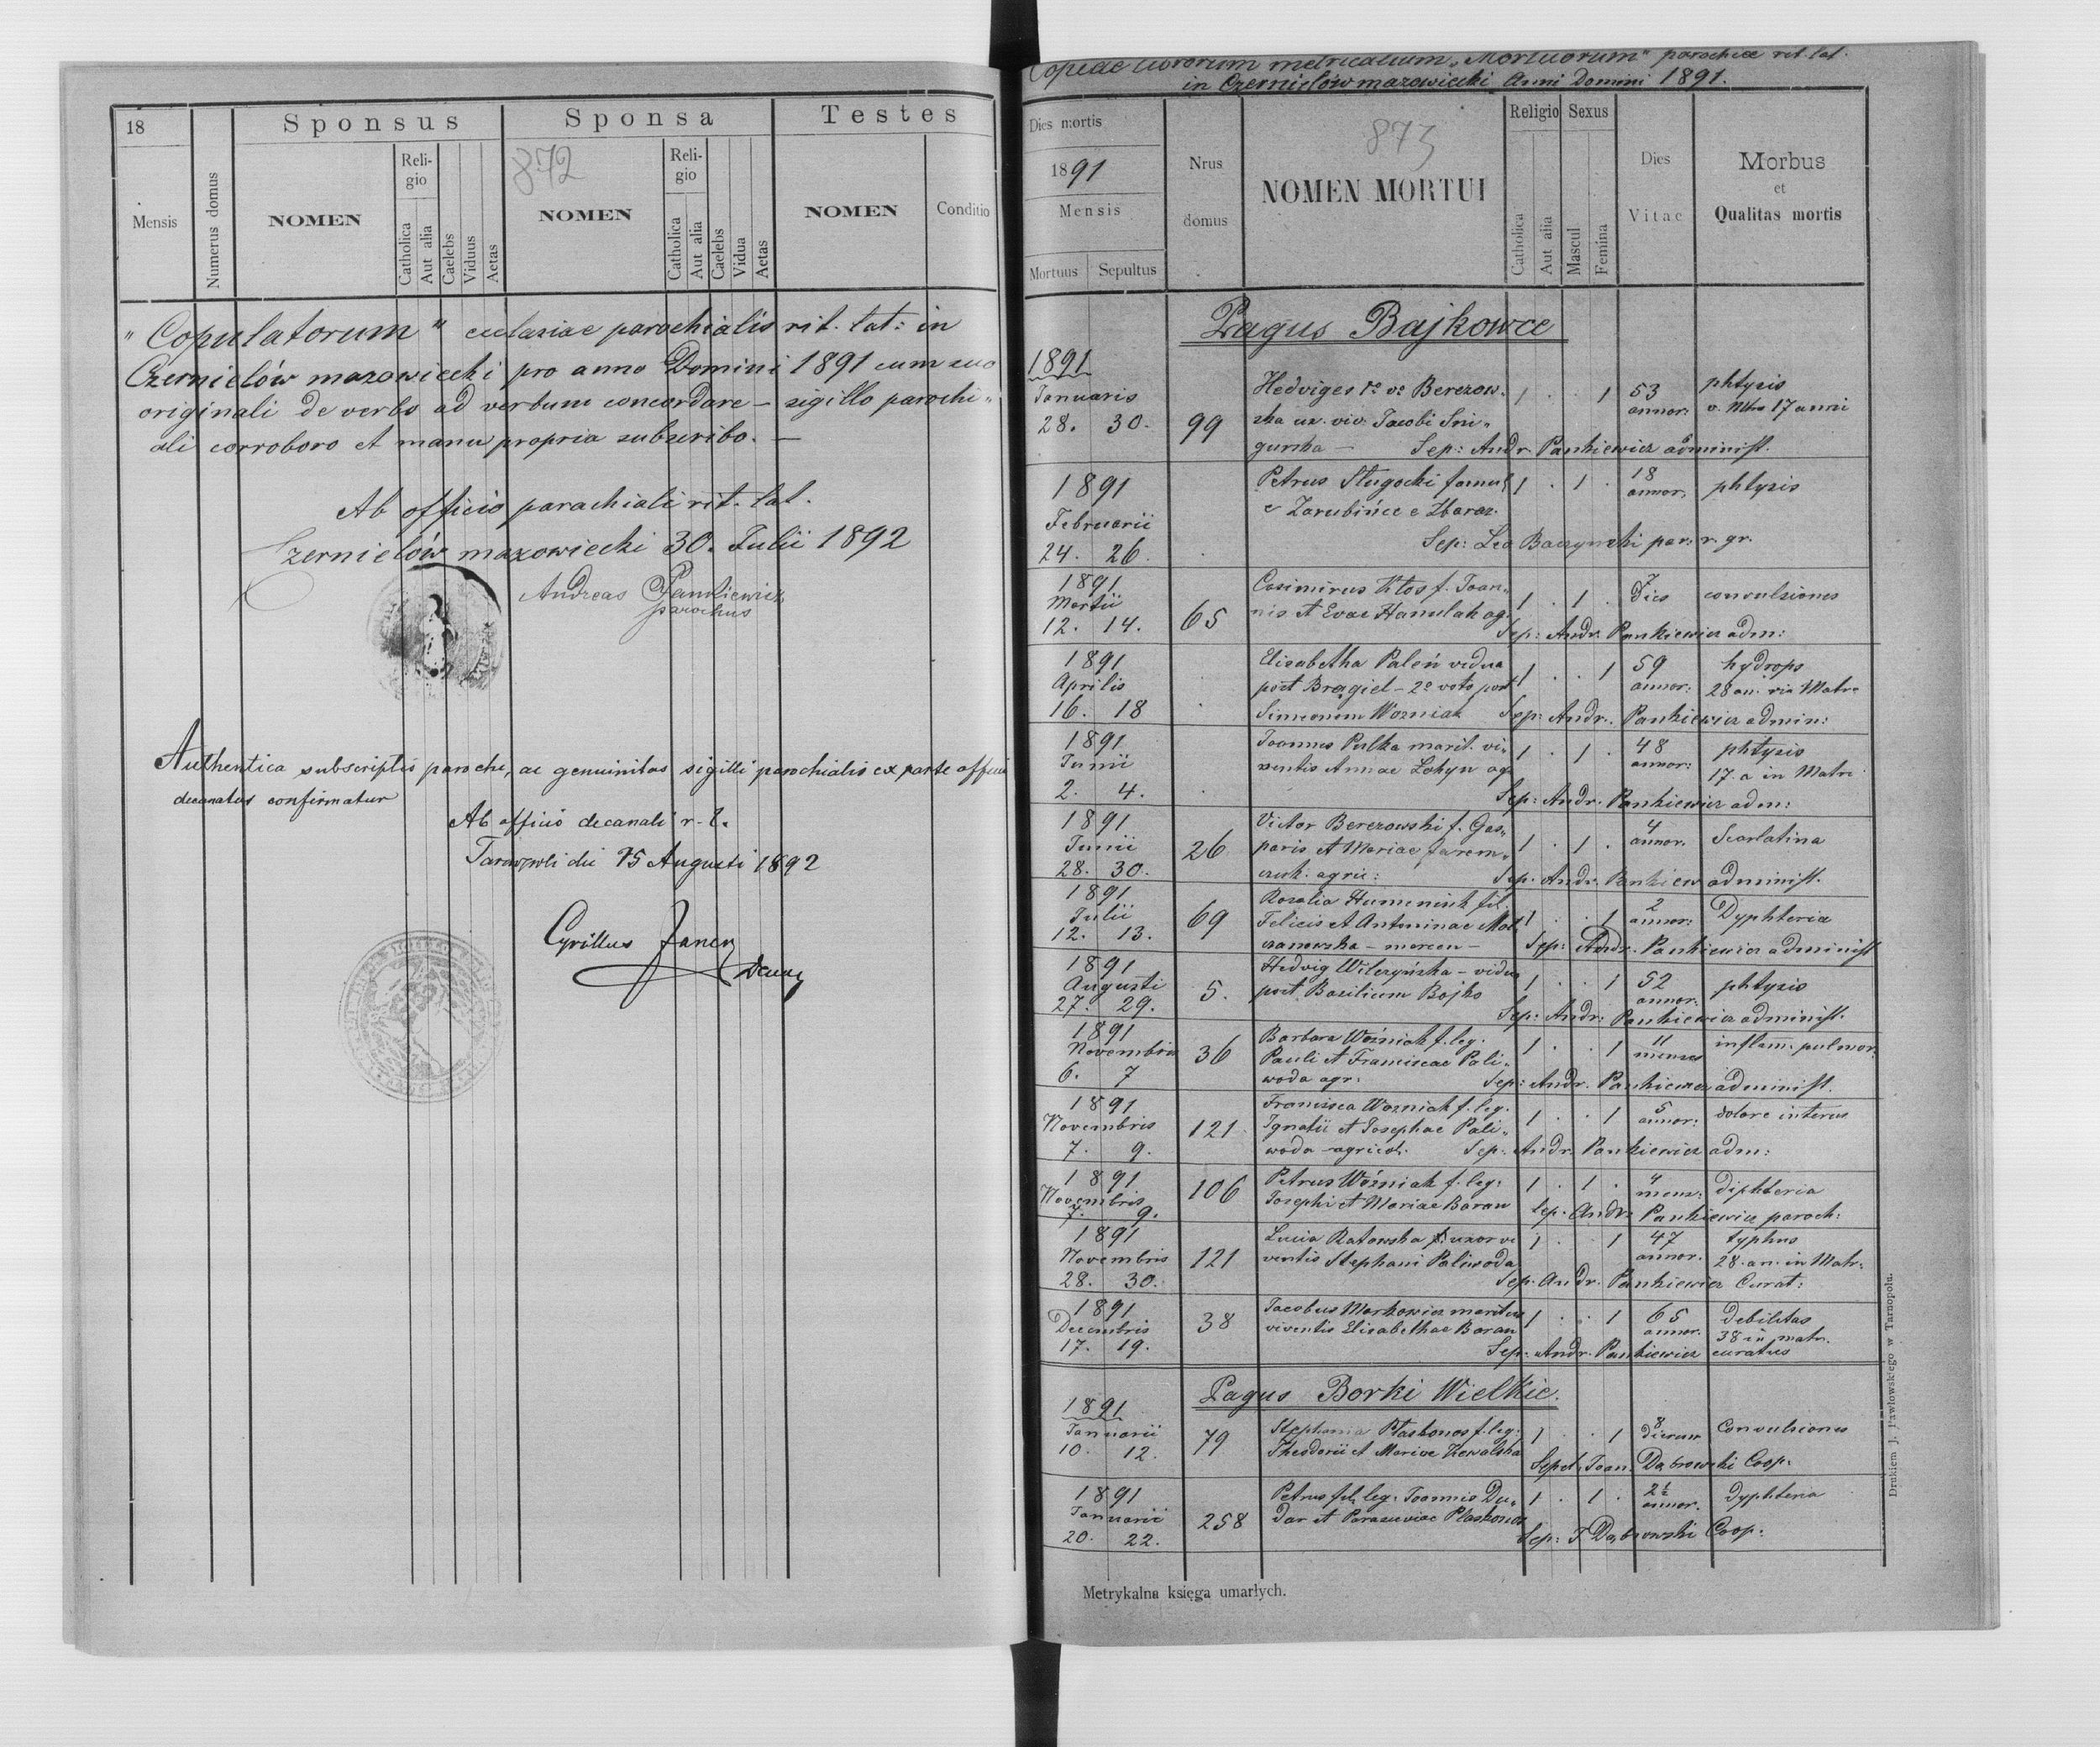 18
Sponsus
Sponsa
Testes
Mensis
Numerus domus
NOMEN
Reli-
gio
Catholica
Aut alia
Caelebs
Viduus
Aetas
872
NOMEN
Reli-
gio
Catholica
Aut alia
Caelebs
Vidua
Aetas
NOMEN
Conditio
"Copulatorum" ecclesiae parochialis rit. lat: in
Czernielów mazowiecki pro anno Domini 1891 cum suo
originali de verbo ad verbum concordare – sigillo parochi"
ali corroboro et manu propria subscribo. —
Ab officio parochiali rit. lat.
Czernielów mazowiecki 30. Julii 1892
Andreas Pankiewicz
parochus
Authentica subscriptis parochi, ac genuinitas sigilli parochialis ex parte officii
decanatus confirmatur
Ab officio decanali r. l.
Tarnopoli die 15 Augusti 1892
Cyrillus
Copiae librorum metricalium "Mortuorum" parochiae rit. lat.
in Czernielów mazowiecki Anni Domini 1891.
Dies mortis
1891
Mensis
Mortuus Sepultus
Nrus
domus
873
NOMEN MORTUI
Religio
Catholica
Aut alia
Sexus
Mascul
Femina
Dies
Vitae
Morbus
et
Qualitas mortis
Pagus Bajkowce
1891
Januaris Hedviges 1o vo Berezow- 1 . . 1 53 phtysis
28. 30. 99 ska ux. viv. Jacobi Sni- annor: v. Mtro 17 anni
gurska — Sep: Andr. Pankiewicz administ.
1891 Petrus Stugocki famul 1 . 1 . 18 phtysis
Februarii e Zarubińce e Zbaraz. annor.
24. 26. . Sep: Leo Baczynski par. r. gr.
1891 Casimirus Kłos f. Joan- 1 . 1 . 7 convulsiones
Martii 65 nis et Evae Hanulak ag. Dies
12. 14. Sep: Andr. Pankiewicz adm:
1891 Elisabetha Paleń vidua 1 . . 1 59 hydrops
Aprilis post Bragiel – 2o voto post annor: 28 an. in Matr
16. 18 . Simeonem Wozniak Sep: Andr. Pankiewicz admin:
1891 Joannes Pulka marit. vi- 1 . 1 . 48 phtysis
Junii ventis Annae Lohyn ag. annor: 17. a in Matri
2. 4. . Sep: Andr. Pankiewicz adm:
1891 Victor Berezowski f. Gas- 1 . 1 . 4 Scarlatina
Junii 26 paris et Mariae Jarem- annor.
28. 30. czuk. agric: Sep. Andr. Pankiew administ.
1891 Rosalia Humeniuk fil. 1 . . 1 2 Dyphteria
Julii 69 Felicis et Antoninae annor:
12. 13. – mercen – Sep: Andr. Pankiewicz administ
1891 Hedvig Wilczyńska – vidua 1 . . 1 52 phtysis
Augusti 5. post Basilium Bojko annor.
27. 29. Sep: Andr: Pankiewicz administ.
1891 Barbara Woźniak f. leg. 1 . . 1 11 inflam. pulmor:
Novembris 36 Pauli et Franciscae Pali- menses
6. 7 woda agr: Sep: Andr. Pankiewicz administ.
1891 Francisca Wozniak f. leg. 1 . . 1 5 dolore interus
Novembris 121. Ignatii et Josephae Pali- annor:
7. 9. woda agricol. Sep. Andr. Pankiewicz adm:
1891 Petrus Woźniak f. leg: 1 . 1 . 4 Diphteria
Novembris 106 Josephi et Mariae Baran mens:
7. 9. Sep. Andr. Pankiewicz paroch:
1891 Lucia Ratowska uxor vi 1 . . 1 47 typhus
Novembris 121 ventis Stephani Paliwoda annor. 28. an. in Matr:
28. 30. Sep. Andr. Pankiewicz Curat:
1891 Jacobus Markowicz maritus 1 . . 1 65 Debilitas
Decembris 38 viventis Elisabethae Baran annor. 38 in matr.
17. 19. Sep. Andr. Pankiewicz curatus
Pagus Borki Wielkie.
1891
Januarii 79 Stephania Płaskonos f. leg. 1 . . 1 8 Convulsiones
10. 12. Theodorii et Mariae Kowalska dierum
Sepel. Joan. Dąbrowski Coop:
1891 Petrus fil. leg. Joannis Du- 1 . 1 . 2½ Dyphteria
Januarii 258 dar et Parasceviae Płaskonos annor.
20. 22. Sep: J Dąbrowski Coop:
Metrykalna księga umarłych.
Drukiem J. Pawłowskiego w Tarnopolu.